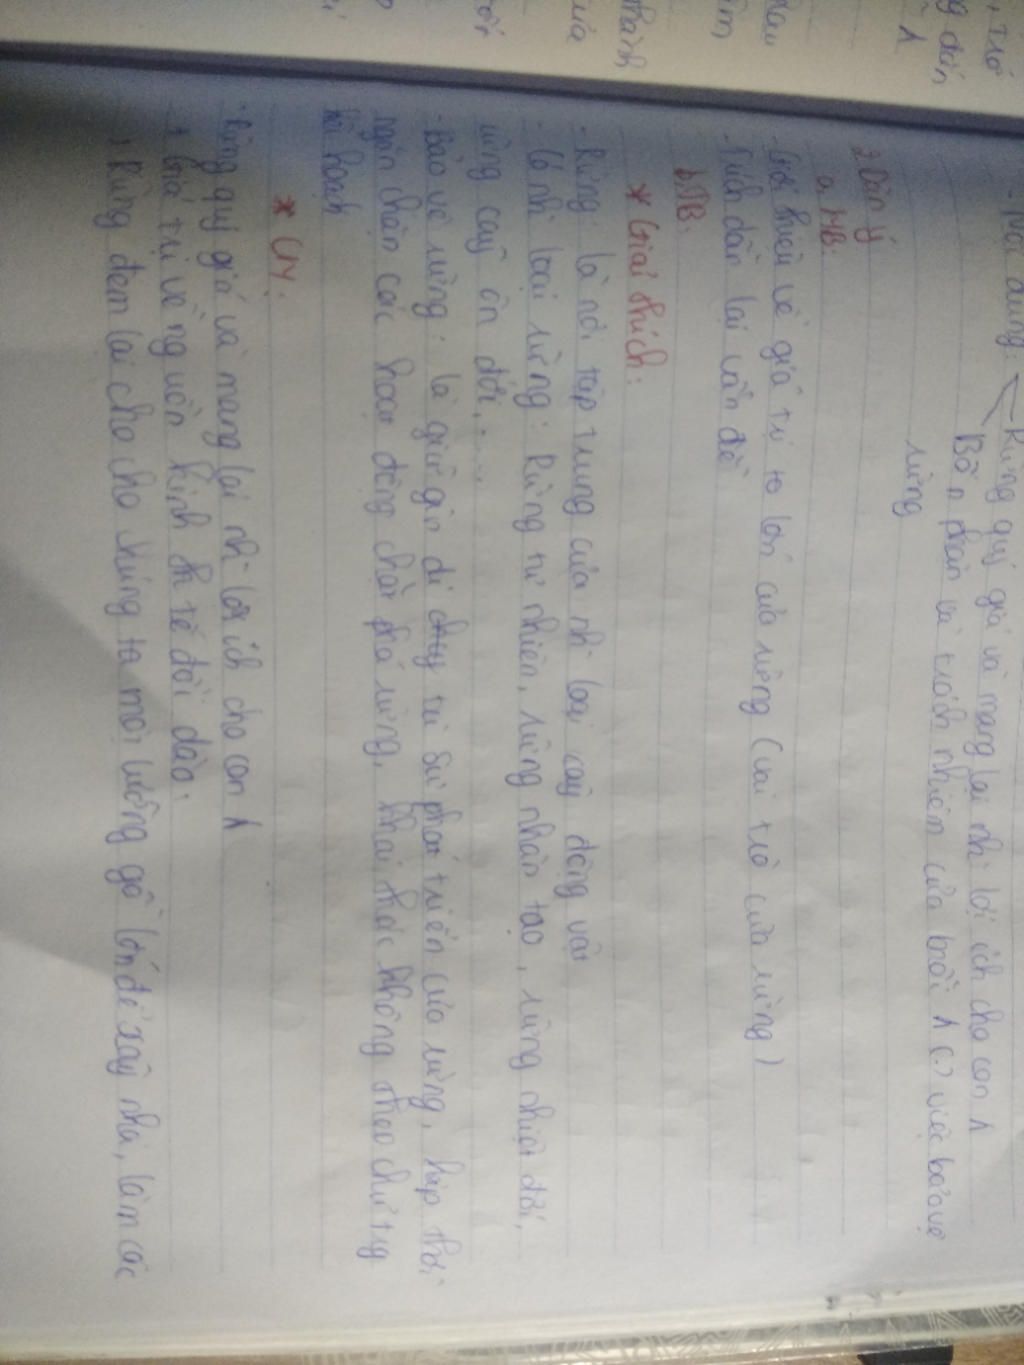 - Nội dung: Rừng quý giá và mang lại nh` lợi ích cho con
Bổn phận và trách nhiệm của mỗi (-) việc bảo vệ
rừng
2. Dàn ý
a. MB:
- Giới thiệu về giá trị to lớn của rừng (vai trò của rừng)
- Trích dẫn lại vấn đề
b. TB:
* Giải thích:
- Rừng: là nơi tập trung của nh` loại cây động vật
- Có nh` loại rừng: Rừng tự nhiên, rừng nhân tạo, rừng nhiệt đới,
rừng cây ôn đới,....
- Bảo vệ rừng: là giữ gìn duy trì sự phát triển của rừng, kịp thời
ngăn chặn các hoạt động chặt phá rừng, khai thác không theo chủ trg
kế hoạch
* CM:
- Rừng quý giá và mang lại nh` lợi ích cho con
+ Giá trị về nguồn kinh tế dồi dào.
+ Rừng đem lại cho cho chúng ta một lượng gỗ lớn để xây nhà, làm các